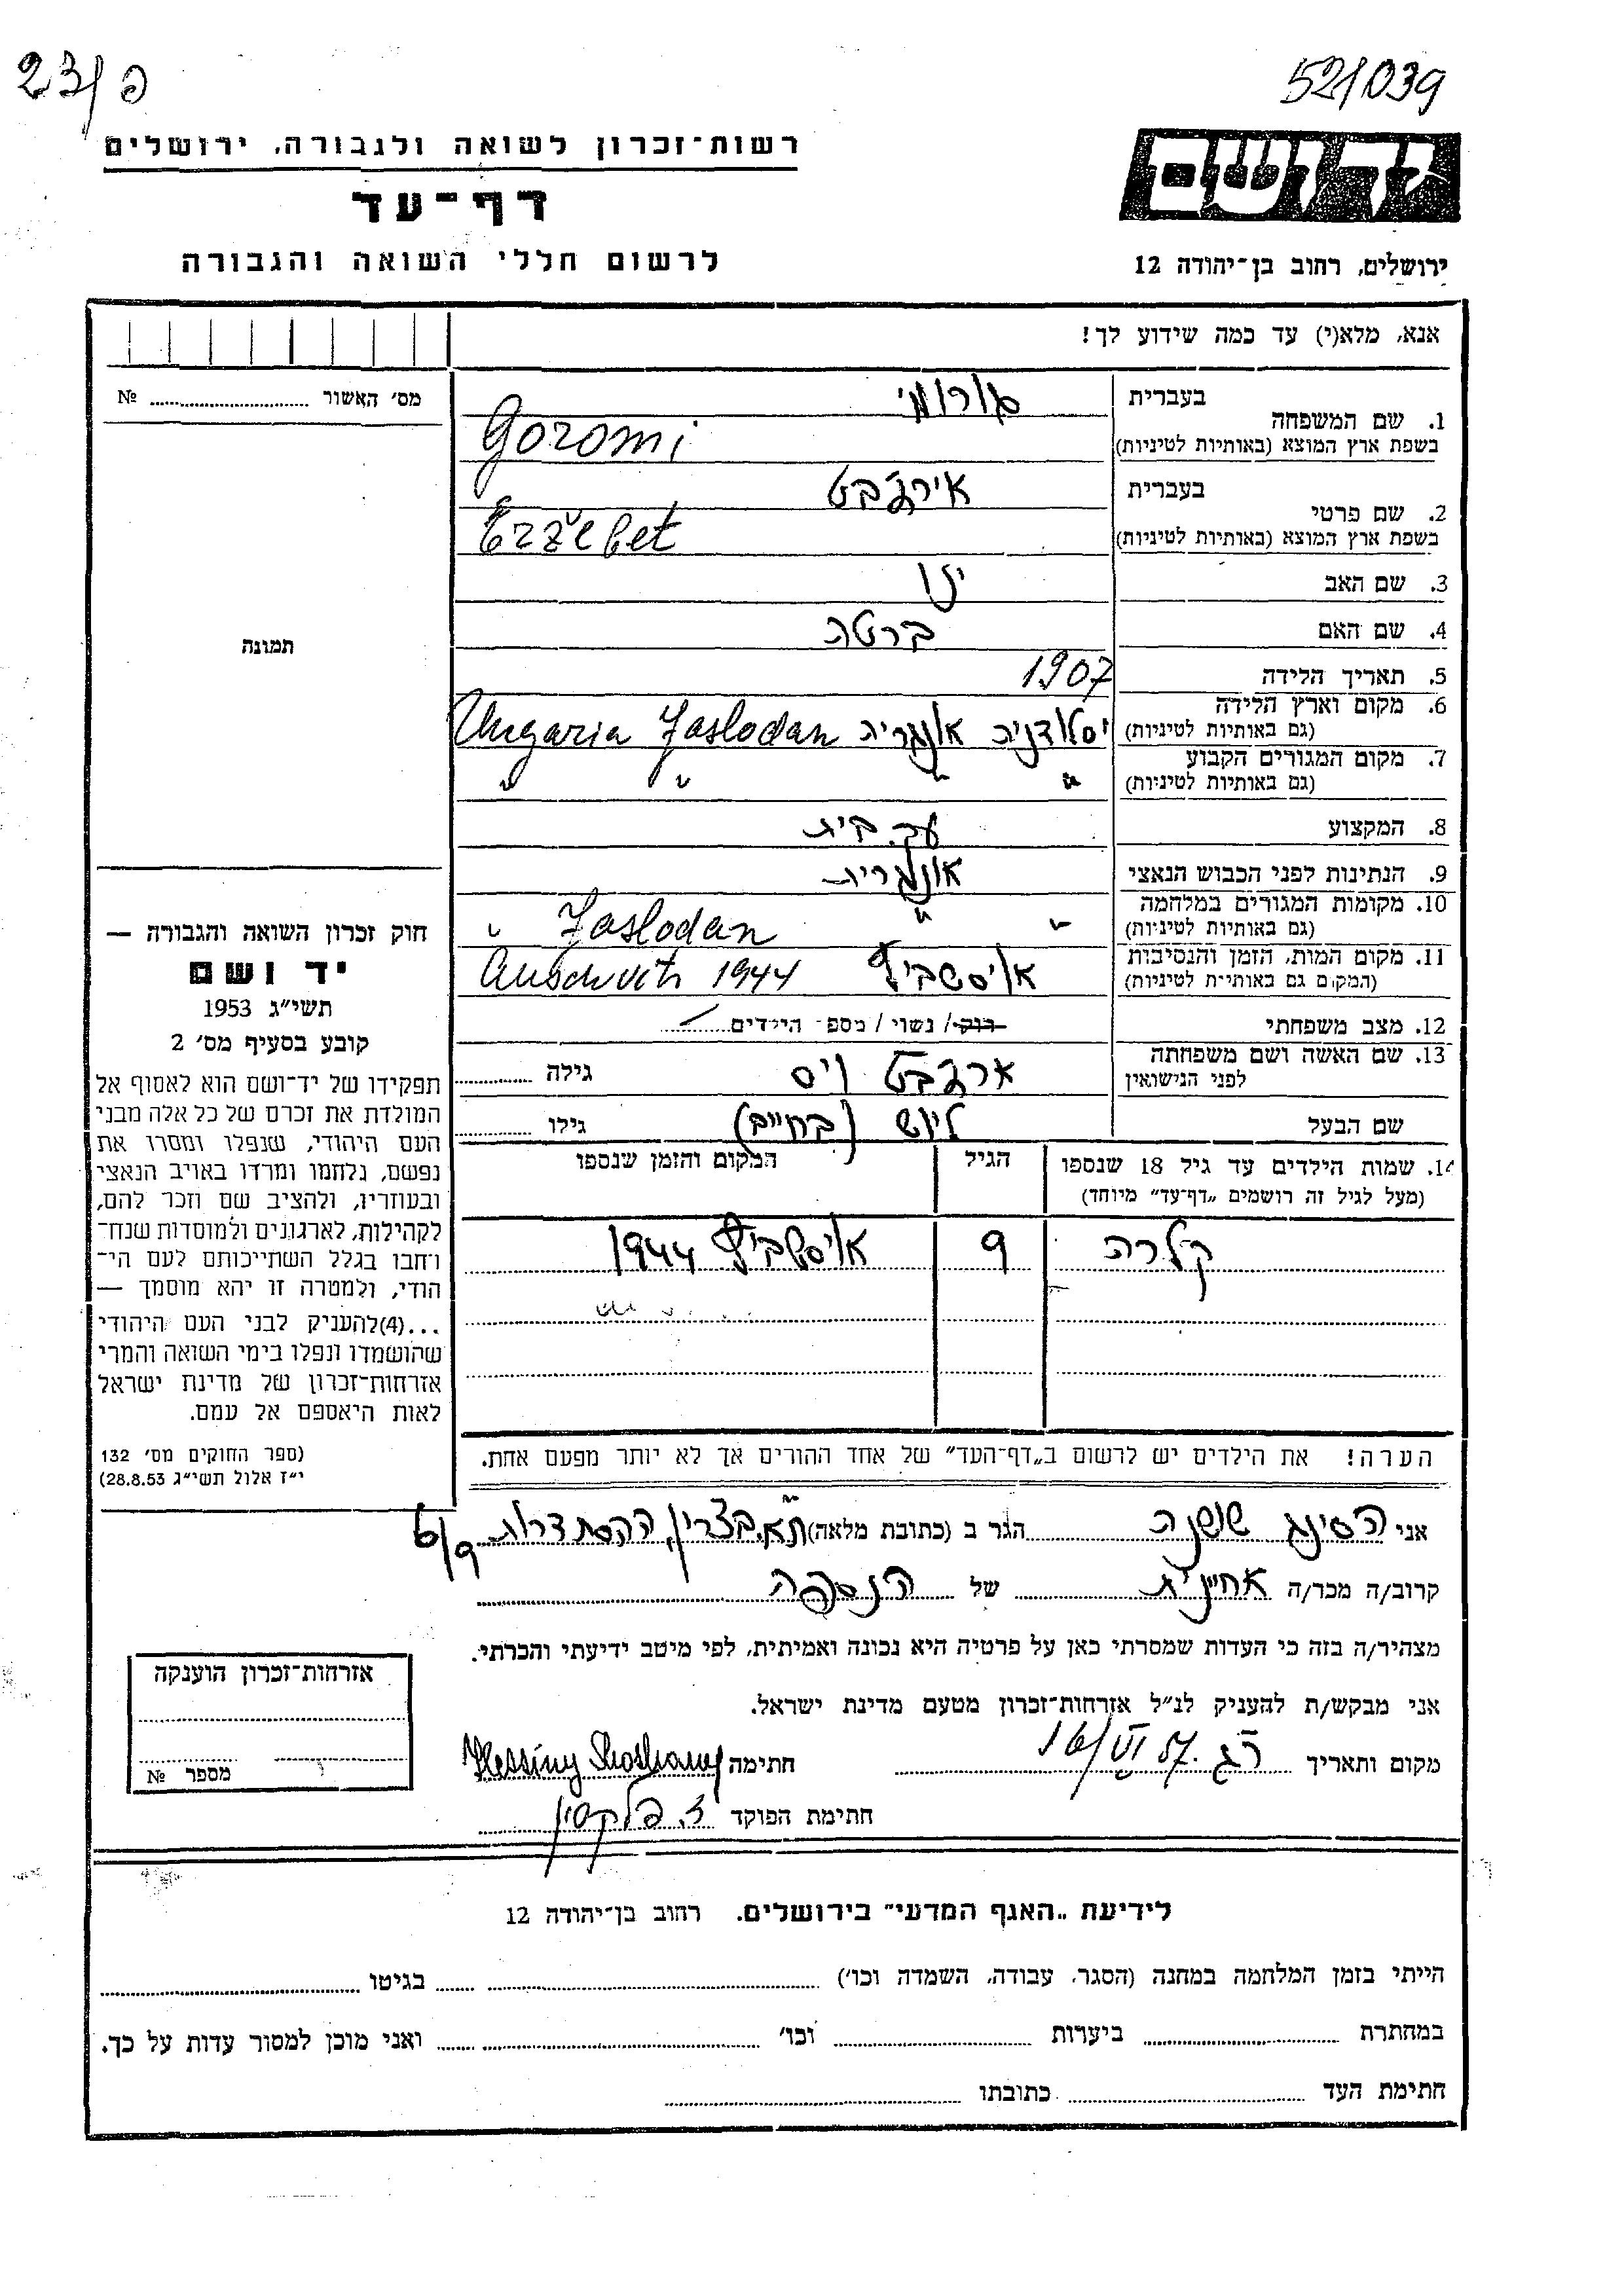 23/פ
521039
רשות־זכרון לשואה ולגבורה, ירושלים
דף־עד
לרשום חללי השואה והגבורה
יד ושם
ירושלים, רחוב בן־יהודה 12
אנא, מלא(י) עד כמה שידוע לך!
מס׳ האשור № ........
תמונה
1. שם המשפחה
בעברית גורומי
בשפת ארץ המוצא (באותיות לטיניות) Goromi
2. שם פרטי
בעברית אירז׳בט
בשפת ארץ המוצא (באותיות לטיניות) Erzebet
3. שם האב ינו
4. שם האם ברטה
5. תאריך הלידה 1907
6. מקום וארץ הלידה
(גם באותיות לטיניות) יסלודניה אונגריה Jaslodan Ungaria
7. מקום המגורים הקבוע
(גם באותיות לטיניות) " " " "
8. המקצוע עק. בית
9. הנתינות לפני הכבוש הנאצי אונגרית
10. מקומות המגורים במלחמה
(גם באותיות לטיניות) " " Jaslodan "
11. מקום המות, הזמן והנסיבות
(המקום גם באותיות לטיניות) אויסשביץ Auschvits 1944
12. מצב משפחתי רווק / נשוי / מספר הילדים
13. שם האשה ושם משפחתה
לפני הנישואין ארז׳בט ויס גילה ........
שם הבעל ליוש (בחיים) גילו ........
14. שמות הילדים עד גיל 18 שנספו
(מעל לגיל זה רושמים „דף־עד״ מיוחד)
הגיל
המקום והזמן שנספו
קלרה 9 אויסשביץ 1944
הערה! את הילדים יש לרשום ב„דף־העד״ של אחד ההורים אך לא יותר מפעם אחת.
חוק זכרון השואה והגבורה —
יד ושם
תשי״ג 1953
קובע בסעיף מס׳ 2
תפקידו של יד־ושם הוא לאסוף אל
המולדת את זכרם של כל אלה מבני
העם היהודי, שנפלו ומסרו את
נפשם, נלחמו ומרדו באויב הנאצי
ובעוזריו, ולהציב שם וזכר להם,
לקהילות, לארגונים ולמוסדות שנח־
רחבו בגלל השתייכותם לעם הי־
הודי, ולמטרה זו יהא מוסמך —
...(4)להעניק לבני העם היהודי
שהושמדו ונפלו בימי השואה והמרי
אזרחות־זכרון של מדינת ישראל
לאות היאספם אל עמם.
(ספר החוקים מס׳ 132
י״ז אלול תשי״ג 28.8.53)
אני הסינג שושנה הגר ב (כתובת מלאה) ת״א, בצרון, ההסתדרות 6/9
קרוב/ה מכר/ה אחיינית של הנספה
מצהיר/ה בזה כי העדות שמסרתי כאן על פרטיה היא נכונה ואמיתית, לפי מיטב ידיעתי והכרתי.
אני מבקש/ת להעניק לנ״ל אזרחות־זכרון מטעם מדינת ישראל.
מקום ותאריך רג 16/VI 57. חתימה Hessing Shoshana
חתימת הפוקד
אזרחות־זכרון הוענקה
מספר №
לידיעת „האגף המדעי״ בירושלים. רחוב בן־יהודה 12
הייתי בזמן המלחמה במחנה (הסגר, עבודה, השמדה וכו׳) ........ בגיטו ........
במחתרת ........ ביערות ........ וכו׳ ........ ואני מוכן למסור עדות על כך.
חתימת העד ........ כתובתו ........